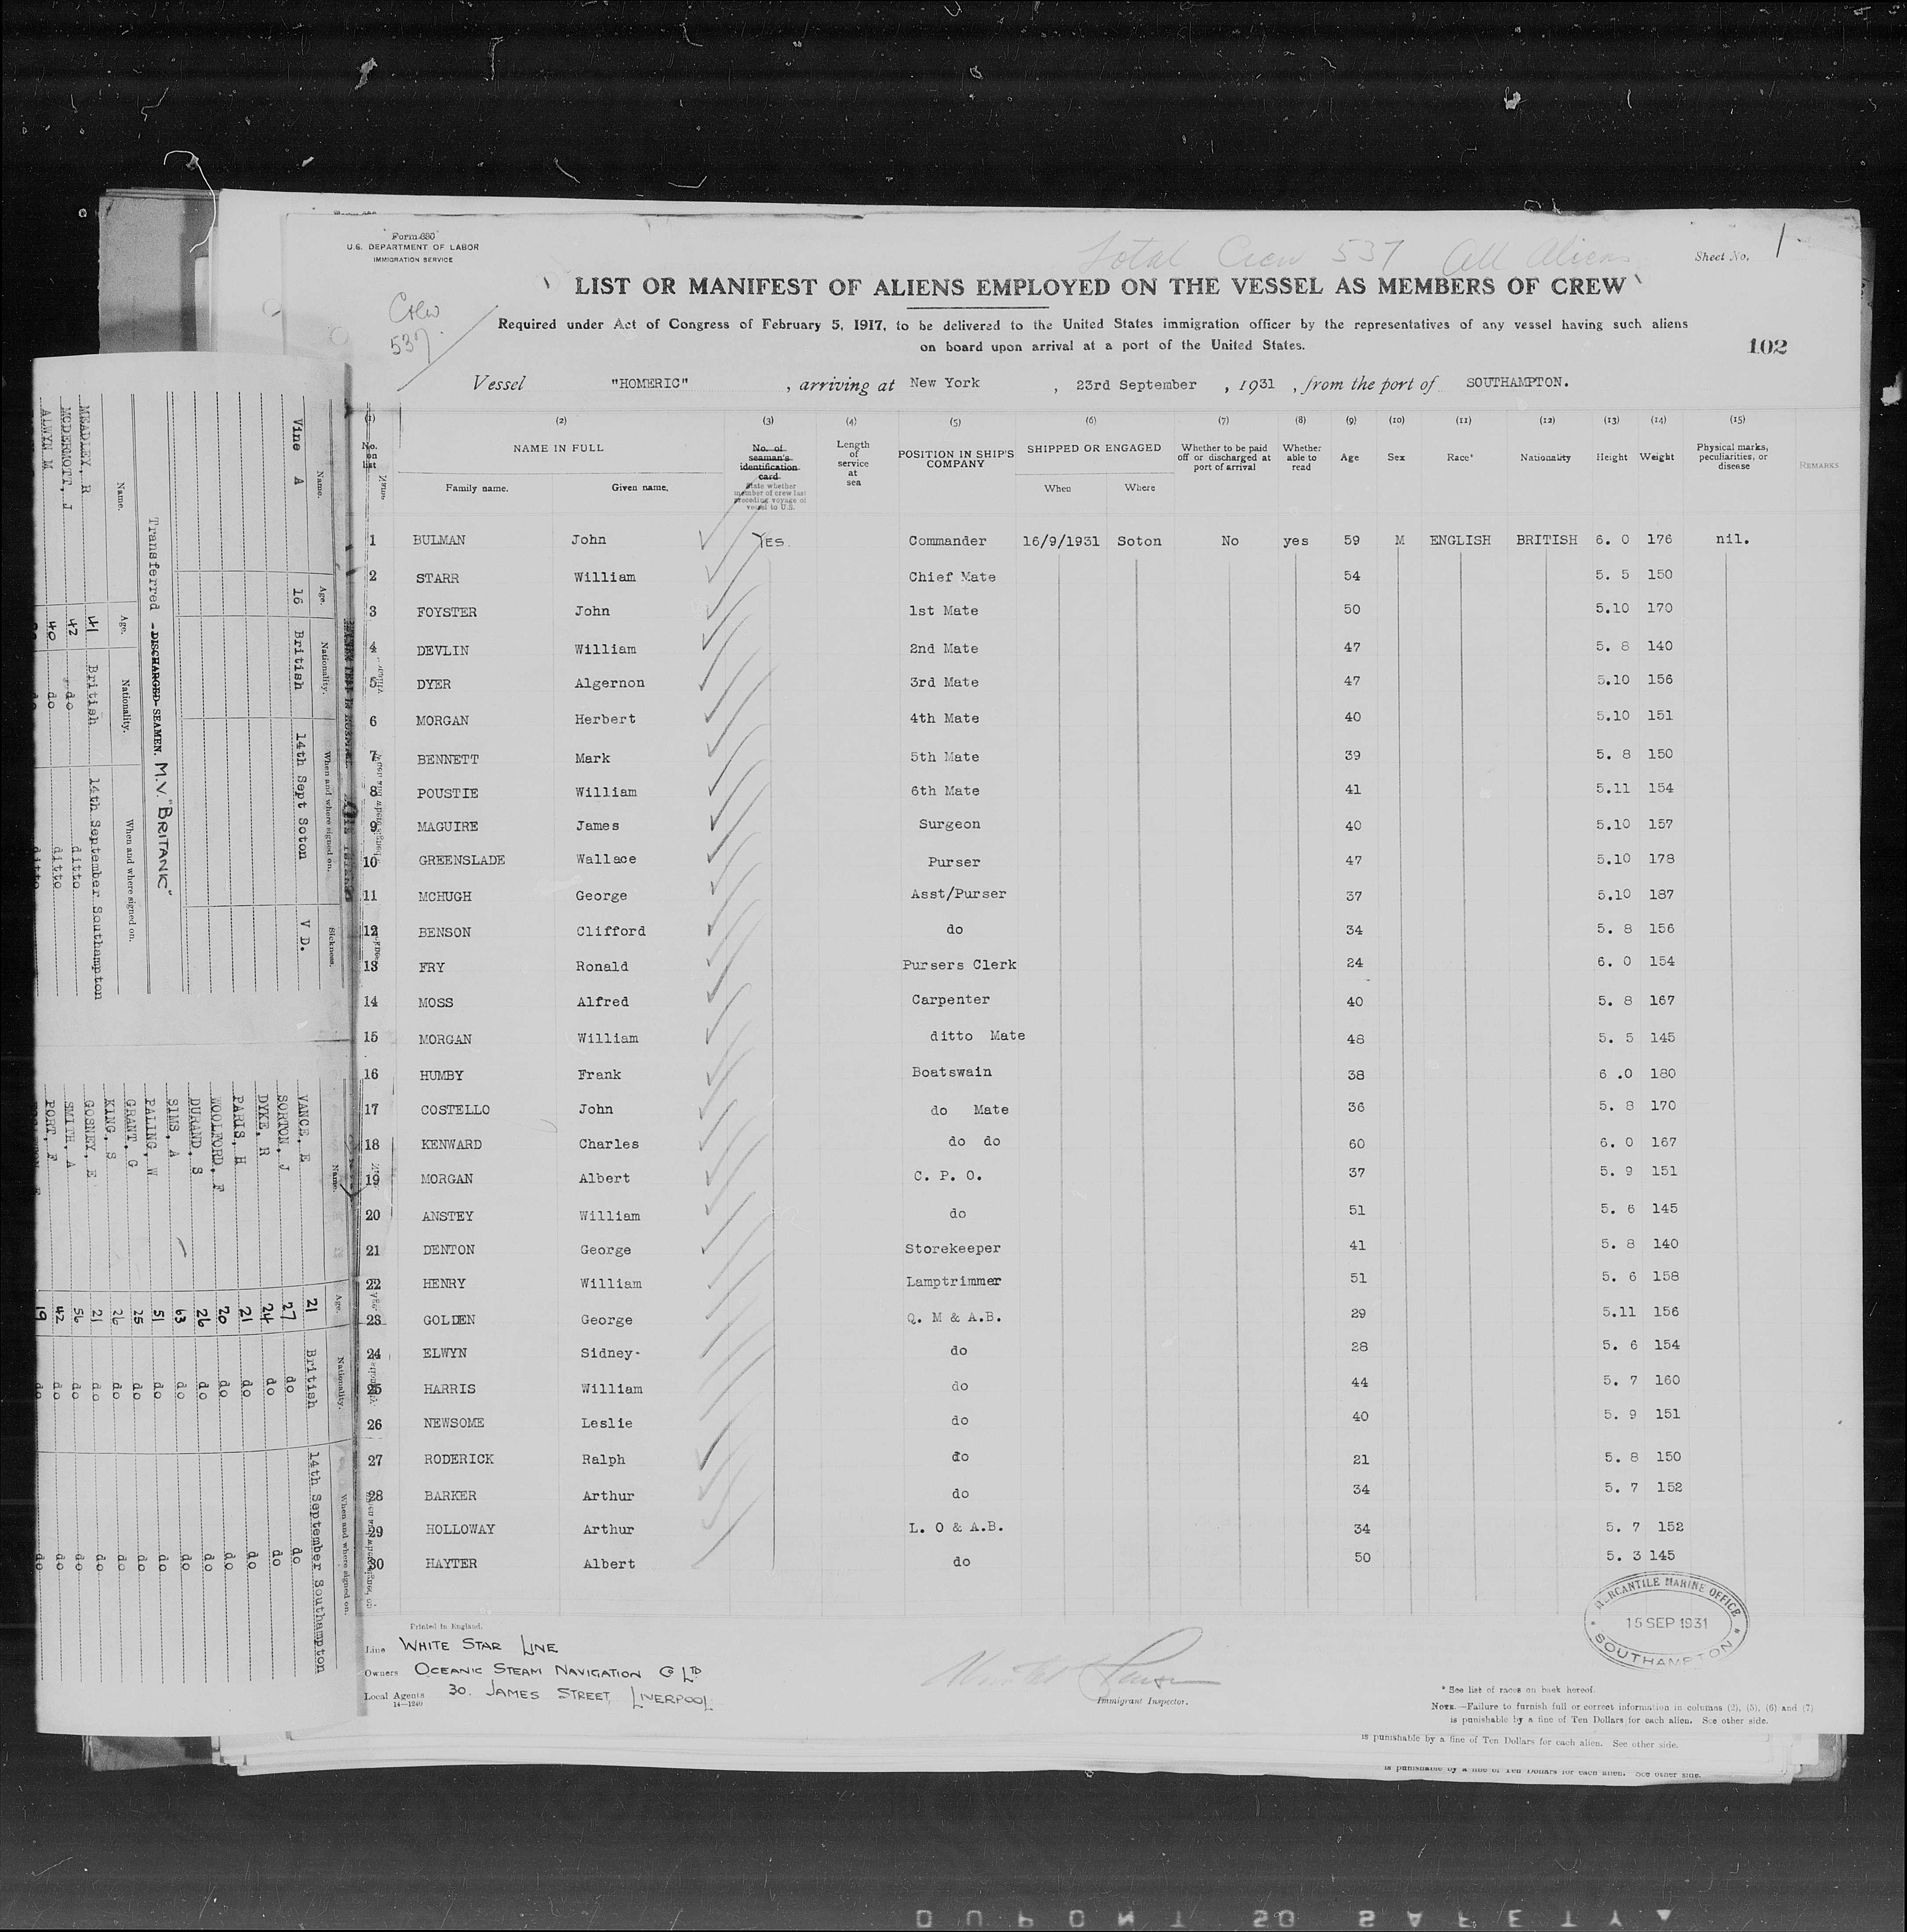 Form 680
U.S. DEPARTMENT OF LABOR
IMMIGRATION SERVICE
Total Crew 537 All Aliens
Sheet No. 1
LIST OR MANIFEST OF ALIENS EMPLOYED ON THE VESSEL AS MEMBERS OF CREW
Crew
537
Required under Act of Congress of February 5, 1917, to be delivered to the United States immigration officer by the representatives of any vessel having such aliens
on board upon arrival at a port of the United States.
102
Vessel "HOMERIC", arriving at New York, 23rd September, 1931, from the port of SOUTHAMPTON.
(1) (2) (3) (4) (5) (6) (7) (8) (9) (10) (11) (12) (13) (14) (15)
No. on list NAME IN FULL Family name. Given name. No. of seaman's identification card State whether member of crew last preceding voyage of vessel to U.S. Length of service at sea POSITION IN SHIP'S COMPANY SHIPPED OR ENGAGED When Where Whether to be paid off or discharged at port of arrival Whether able to read Age Sex Race* Nationality Height Weight Physical marks, peculiarities, or disease REMARKS
1 BULMAN John YES. Commander 16/9/1931 Soton No yes 59 M ENGLISH BRITISH 6. 0 176 nil.
2 STARR William Chief Mate 54 5. 5 150
3 FOYSTER John 1st Mate 50 5.10 170
4 DEVLIN William 2nd Mate 47 5. 8 140
5 DYER Algernon 3rd Mate 47 5.10 156
6 MORGAN Herbert 4th Mate 40 5.10 151
7 BENNETT Mark 5th Mate 39 5. 8 150
8 POUSTIE William 6th Mate 41 5.11 154
9 MAGUIRE James Surgeon 40 5.10 157
10 GREENSLADE Wallace Purser 47 5.10 178
11 MCHUGH George Asst/Purser 37 5.10 187
12 BENSON Clifford do 34 5. 8 156
13 FRY Ronald Pursers Clerk 24 6. 0 154
14 MOSS Alfred Carpenter 40 5. 8 167
15 MORGAN William ditto Mate 48 5. 5 145
16 HUMBY Frank Boatswain 38 6 .0 180
17 COSTELLO John do Mate 36 5. 8 170
18 KENWARD Charles do do 60 6. 0 167
19 MORGAN Albert C. P. O. 37 5. 9 151
20 ANSTEY William do 51 5. 6 145
21 DENTON George Storekeeper 41 5. 8 140
22 HENRY William Lamptrimmer 51 5. 6 158
23 GOLDEN George Q. M & A.B. 29 5.11 156
24 ELWYN Sidney- do 28 5. 6 154
25 HARRIS William do 44 5. 7 160
26 NEWSOME Leslie do 40 5. 9 151
27 RODERICK Ralph do 21 5. 8 150
28 BARKER Arthur do 34 5. 7 152
29 HOLLOWAY Arthur L. O & A.B. 34 5. 7 152
30 HAYTER Albert do 50 5. 3 145
MERCANTILE MARINE OFFICE
15 SEP 1931
SOUTHAMPTON
Printed in England.
Line WHITE STAR LINE
Owners OCEANIC STEAM NAVIGATION Co LTD
Local Agents 30. JAMES STREET, LIVERPOOL
14—1240
Immigrant Inspector.
* See list of races on back hereof.
NOTE.—Failure to furnish full or correct information in columns (2), (5), (6) and (7)
is punishable by a fine of Ten Dollars for each alien. See other side.
is punishable by a fine of Ten Dollars for each alien. See other side.
is punishable by a fine of Ten Dollars for each alien. See other side.
Name. Age. Nationality. When and where signed on. Sickness.
Vine A 16 British 14th Sept Soton V D.
Transferred DISCHARGED SEAMEN. M.V. "BRITANIC"
Name. Age. Nationality. When and where signed on.
MEADLEY, R 41 British 14th September Southampton
MCDERMOTT, J 42 do ditto
ALWYN M 40 do ditto
Name. Age. Nationality. When and where signed on.
VANCE, E 21 British 14th September Southampton
SORTON, J 27 do do
DYKE, R 24 do do
PARIS, H 21 do do
WOOLFORD, F 20 do do
DURAND, S 26 do do
SIMS, A 63 do do
PALING, W 51 do do
GRANT, G 25 do do
KING, S 26 do do
GOSNEY, E 21 do do
SMITH, A 56 do do
PORT, F 42 do do
19 do do
DUPONT 50 SAFETY